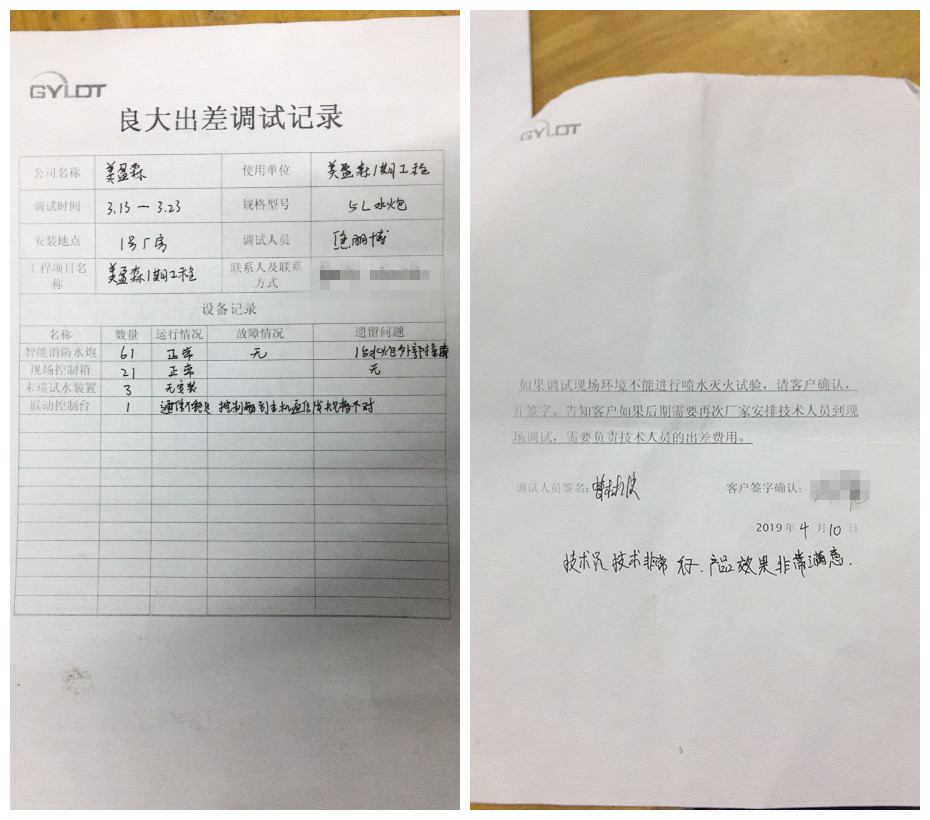 GYLDT
良大出差调试记录
公司名称 美盈森 使用单位 美盈森1期工程
调试时间 3.13 — 3.23 规格型号 5L水炮
安装地点 1号厂房 调试人员 丽博
工程项目名称 美盈森1期工程 联系人及联系方式
设备记录
名称 数量 运行情况 故障情况 遗留问题
智能消防水炮 61 正常 无 1台水炮外部
现场控制箱 21 正常 无
末端试水装置 3 无安装
联动控制台 1 通信 控制 到主机通信 不对
GYLDT
如果调试现场环境不能进行喷水灭火试验，请客户确认，
并签字。告知客户如果后期需要再次厂家安排技术人员到现
场调试，需要负责技术人员的出差费用。
调试人员签名： 客户签字确认：
2019年4月10日
技术员技术非常好.产品效果非常满意.
5